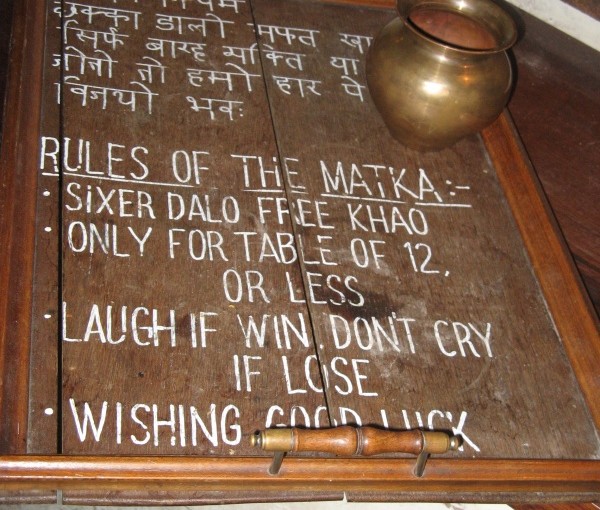 छक्का डालो मफत खा
सिर्फ बारह व्यक्ति या
जीतो तो हमो हार पे
विजयी भवः
RULES OF THE MATKA:-
• SIXER DALO FREE KHAO
• ONLY FOR TABLE OF 12,
OR LESS
• LAUGH IF WIN. DON'T CRY
IF LOSE
• WISHING GOOD LUCK